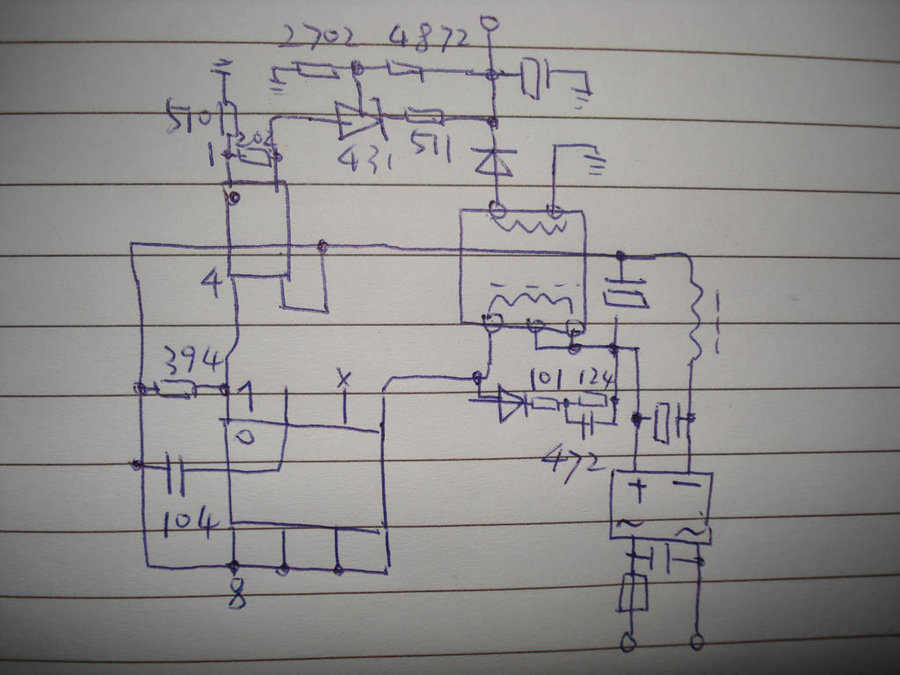 2702 4872
510
1 202
431 511
4
394
1 X
101 124
472
104
+ −
~ ~
8